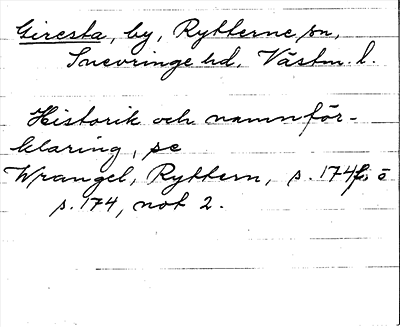 Giresta, by, Rytterne sn,
Snevringe hd. Västm. l.
Historik och namnför-
klaring, se
Wrangel, Ryttern, s. 174f, o
s. 174, not 2.